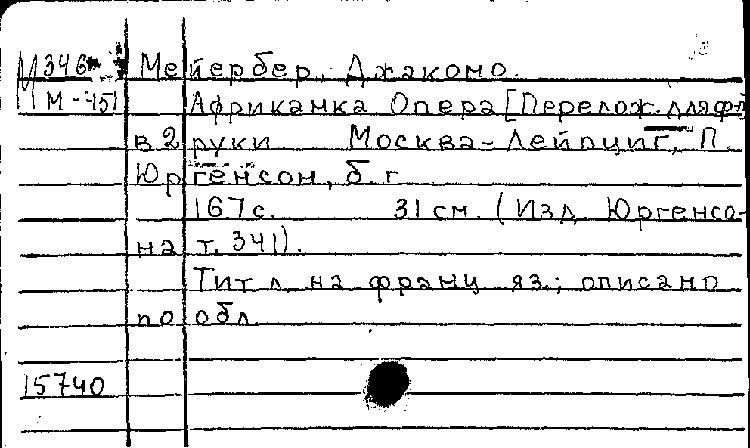 М346 Мейербер, Джакомо.
М-451 Африканка Опера [Перелож. для ф-п
в 2 руки Москва-Лейпциг, П.
Юргенсон, б.г
167с. 31 см. (Изд Юргенсо-
на т. 341).
Тит л на франц яз.; описано
по обл
15740